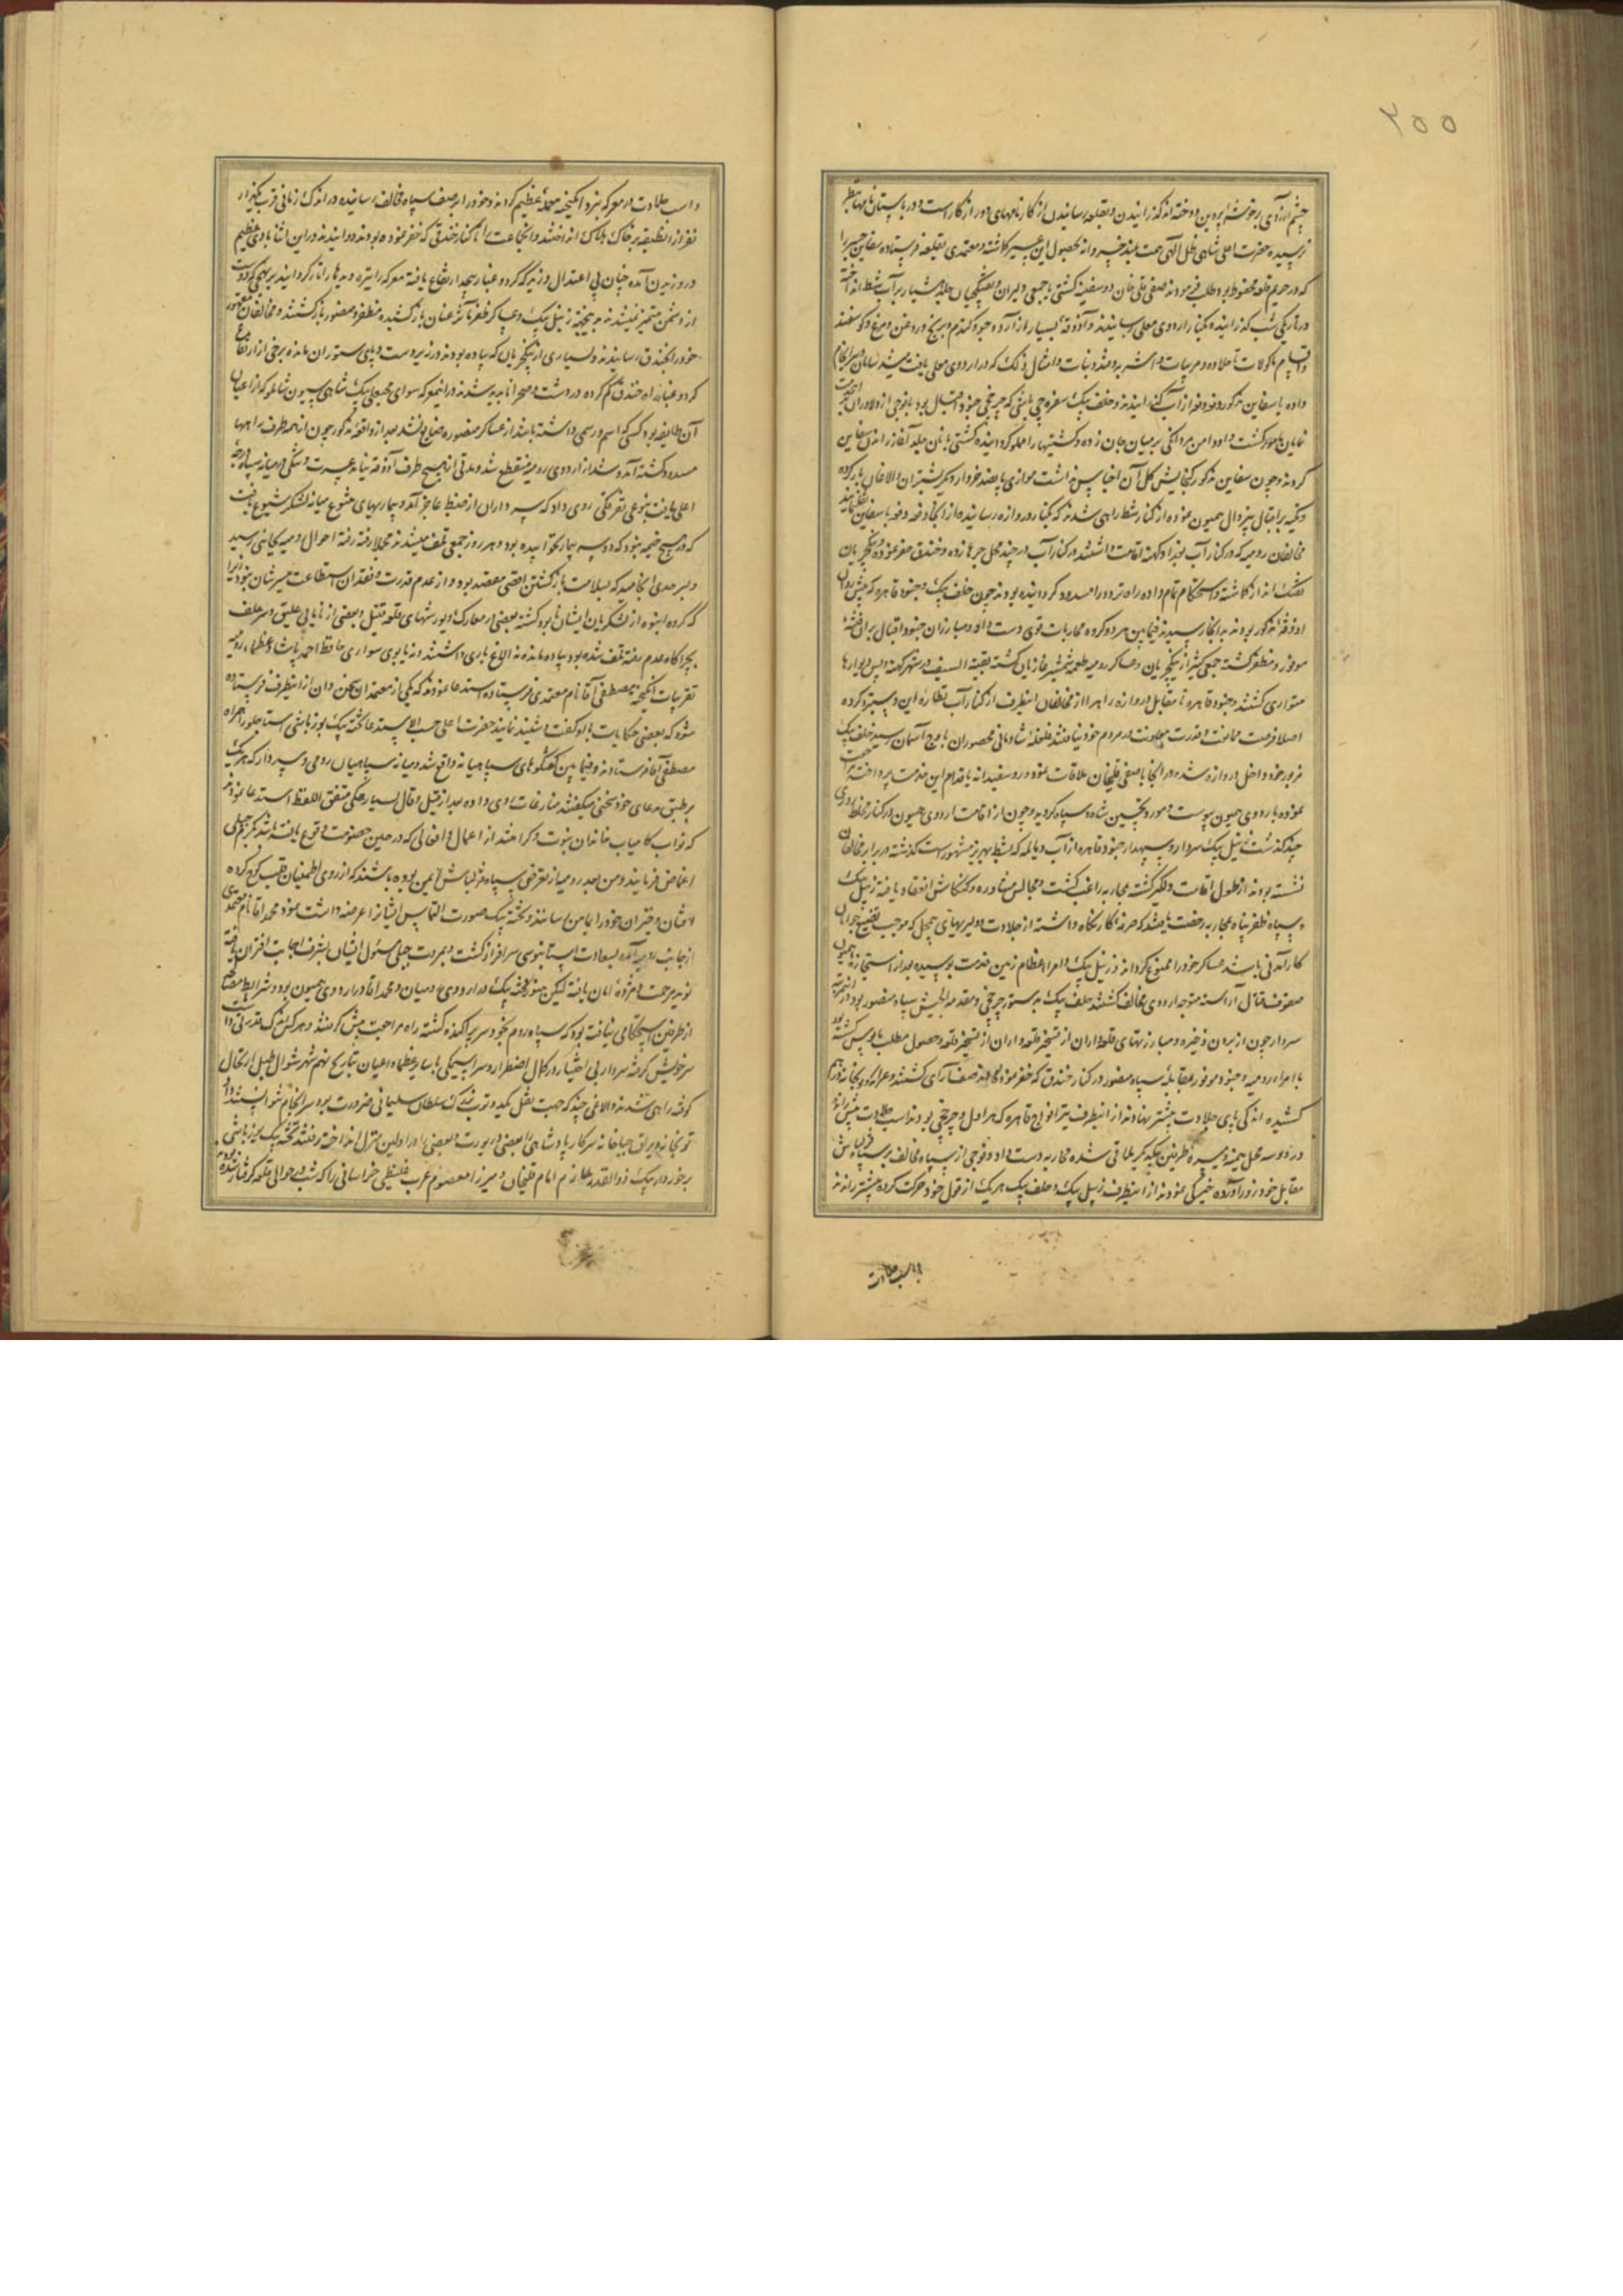 ۲۵۵
چشم آرزوی بر خوشه پروین دوخته اند گذرانیدن و بقلعه رسانیدن از کارنامهای دور از کار است و در باستان نامها بنظر
نرسیده حضرت اعلی شاهی ظل الهی همت بلند خسروانه بحصول این کاشته و معتمدی بقلعه فرستاده سفاین
که در حریم قلعه محفوظ بود طلب فرمودند صفی قلی خان دو سفینه کشتی با جمعی دلیران و تفنگچیان بر آب شط انداخته
در تاریکی شب گذرانیده بکنار اردوی معلی رسانیدند و آذوقه بسیار از آرد و جو و گندم و برنج و روغن و مرغ و گوسفند
و اقسام ماکولات تا حلاوه و مربیات و اشربه و قند و نبات و امثال ذلک که در اردوی معلی یافت میشد سامان و سرانجام
داده با سفاین مذکور دفعه دفعه از آب گذرانیدند و خلف بیک سفره چی باشی که چرخچی جنود اقبال بود با فوجی از دلاوران
نمایان گشت و او دامن مردانگی بر میان جان زده و کشتیها را مملو گردانیده کشتی بانان آغاز راندن سفاین
کردند و چون سفاین مذکور گنجایش کل آن اجناس نداشت موازی پانصد خروار دیگر بشتران و الاغان بار کرده
و تکیه بر اقبال بیزوال همیون نموده از کنار شط راهی شدند که بکنار دروازه رسانیده از آنجا دفعه دفعه با سفاین
مخالفان رومیه که در کنار آب بغداد کهنه اقامت داشتند در کنار آب در چند محل جرها زده و خندق حفر نموده و ینگچریان
تفنگ انداز گماشته و استحکام تمام داده راه تردد را مسدود گردانیده بودند چون خلف بیک و جنود قاهره که
آذوقه مذکور بودند بدانجا رسیدند فیمابین هر دو گروه محاربات قوی دست داد و مبارزان جنود اقبال بر آن
موفور و مظفر گشته جمعی کثیر از ینگچریان و عساکر رومیه طعمه شمشیر غازیان گشته بقیة السیف در شهر کهنه و پس دیوارها
متواری گشتند و جنود قاهره تا مقابل دروازه راهها از مخالفان اینطرف از کنار آب نظاره این
اصلا فرصت ممانعت و قدرت معاونت مردم خود نیافتند غلغله شادمانی محصوران باوج آسمان رسید خلف بیک
خود داخل دروازه شده در آنجا با صفی قلیخان ملاقات نموده و روسفیدانه باقدام این خدمت پرداخته
نموده باردوی همیون پیوست و مورد تحسین شاه و سپاه گردید و چون از اقامت اردوی همیون در کنار
چند گذشت زینل بیک سردار و سپهدار جنود قاهره از آب دیاله که بشط بهریز مشهور است گذشته در برابر مخالفان
نشسته بودند از طول اقامت دلگیر گشته بمحاربه راغب گشت و مجالس مشاوره و کنکاش انعقاد یافته زینل بیک
و سپاه ظفر پناه بمحاربه رخصت یافتند که صرفه کار نگاه داشته از جلادت و دلیریهای بیمحل که موجب تضییع جوانان
کارآمدنی باشد عساکر خود را ممنوع گردانند زینل بیک و امراء عظام زمین خدمت بوسیده بعد از استجازه همیون
صفوف قتال آراسته متوجه اردوی مخالف گشتند خلف بیک بدستور چرخچی و مقدمة الجیش سپاه منصور بود
سردار چون از بردن ذخیره و مبارزتهای قلعه داران از تسخیر قلعه و حصول مطلب مایوس گشته بود
با امراء رومیه و جنود موفور بمقابله سپاه منصور در کنار خندق که حفر نموده بودند صف آرای گشتند و عرابه و توپخانه
کشیده اندکی پای جلادت پیشتر نهادند از اینطرف نیز افواج قاهره که هراول و چرخچی بودند اسب جلادت پیش راندند
در دو سه محل میمنه و میسره طرفین بیکدیگر ملاقی شده محاربه دست داد و فوجی از سپاه مخالف بر سپاه قزلباش
مقابل خود زور آورده خیرگی نمودند از اینطرف زینل بیک و خلف بیک هر یک از قول خود حرکت کرده پیشتر راندند
و اسب جلادت
و اسب جلادت در معرکه نبرد انگیخته حمله عظیم کردند و خود را بر صف سپاه مخالف رسانیده در اندک زمانی قرب یکهزار
نفر از آن طبقه بر خاک هلاک انداختند و آنجماعت را تا کنار خندقی که حفر نموده بودند دوانیدند در این اثنا بادی عظیم
در وزیدن آمده چنان بی اعتدال وزید که گرد و غبار بیحد ارتفاع یافته معرکه را تیره و دیدها را تار گردانید
از دشمن متمیز نمیشدند زینل بیک و عساکر ظفر مآثر عنان باز کشیده مظفر و منصور بازگشتند و مخالفان مقهور
خود را بخندق رسانیدند و بسیاری از ینگچریان که پیاده بودند در زیر دست و پای ستوران مانده برخی از ارتفاع
گرد و غبار راه خندق گم کرده در دشت و صحرا ناپدید شدند در آن معرکه سوای بیک شاهی سیون شاملو که از اعیان
آن طایفه بود کسی که اسم و رسمی داشته باشد از عساکر منصوره ضایع نشد بعد از واقعه مذکور چون از همه طرف راهها
مسدود گشته آمد و شد از اردوی رومیه منقطع شد و مدتی از هیچ طرف آذوقه نیامد عسرت و تنگی در میانه سپاه بدرجه
اعلی یافت بنوعی تفرقگی روی داد که سرداران از ضبط عاجز آمده و بیماریهای متنوع میانه لشکر شیوع یافت
که در هیچ خیمه نبود که دو سه بیمار نخوابیده بود و هر روز جمعی تلف میشدند مجملا رفته رفته احوال رومیه بجائی رسید
و بسر حدی انجامید که بسلامت بازگشتن اقصی مقصد بود و از عدم قدرت و فقدان استطاعت میسرشان نبود زیرا
که گروه انبوه از لشکریان ایشان نابود گشته بعضی در معارک و یورشهای قلعه قتیل و بعضی از نایابی علیق و سر علف
بچراگاه عدم رفته تلف شده بود پیاده مانده نه الاغ باری داشتند و نه یابوی سواری حافظ احمد پاشا و عظماء رومیه
تقریبات انگیخته مصطفی آقا نام معتمدی فرستاده استدعا نمودند که یکی از معتمدان سخن دان از اینطرف فرستاده
شود که بعضی حکایات با او گفت و شنید نمایند حضرت اعلی حسب الاستدعا تخته بیک یوزباشی استاجلو را همراه
مصطفی آقا فرستادند و فیمابین گفتگوهای سپاهیانه واقع شد و میانه سپاهیان رومی و سردار که هر یک
بر طبق مدعای خود سخنی میگفتند منازعات روی داده بعد از قیل و قال بسیار همگی متفق اللفظ استدعا نمودند
که نواب کامیاب خاندان نبوت و کرامتند از اعمال و افعالی که در حین خصومت وقوع یافته باشد بکرم جبلی
اغماض فرمایند و من بعد رومیه از تعرض سپاه قزلباش ایمن بوده باشند که از روی اطمینان قلب کوچ کرده
افتان و خیزان خود را بمامن رسانند و تخته بیک صورت التماس ایشان را عرضه داشت نمود محمد آقا نام معتمدی
از جانب رومیه آمده بسعادت بساط بوسی سرافراز گشت و بمروت جبلی مسئول ایشان بشرف اجابت اقتران یافته
نوید مرحمت و مژده امان یافته لیکن هنوز تخته بیک در اردوی رومیان و محمد آقا در اردوی همیون بود و شرایط مصالحه
از طرفین استحکامی نیافته بود که سپاه روم بخود سر پراکنده گشته راه مراجعت پیش گرفتند و هر کس ترک قدرتی داشت
سر خویش گرفته سردار بی اختیار در کمال اضطرار و سراسیمگی با سایر عظما و اعیان بتاریخ نهم شهر شوال طبل ارتحال
کوفته راهی شدند و الاغی چند که جهت نقل سلطان سلیمانی ضرورت بود سرانجام نتوانستند داد
توپخانه و یراق جباخانه سرکار پادشاهی را بعضی در یورت و بعضی را در اولین منزل انداخته رفتند تخته بیک یوزباشی
برخوردار بیک ذوالقدر ملازم امام قلیخان و میرزا معصوم عرب خراسانی را که شب در حوالی قلعه گرفتار شده